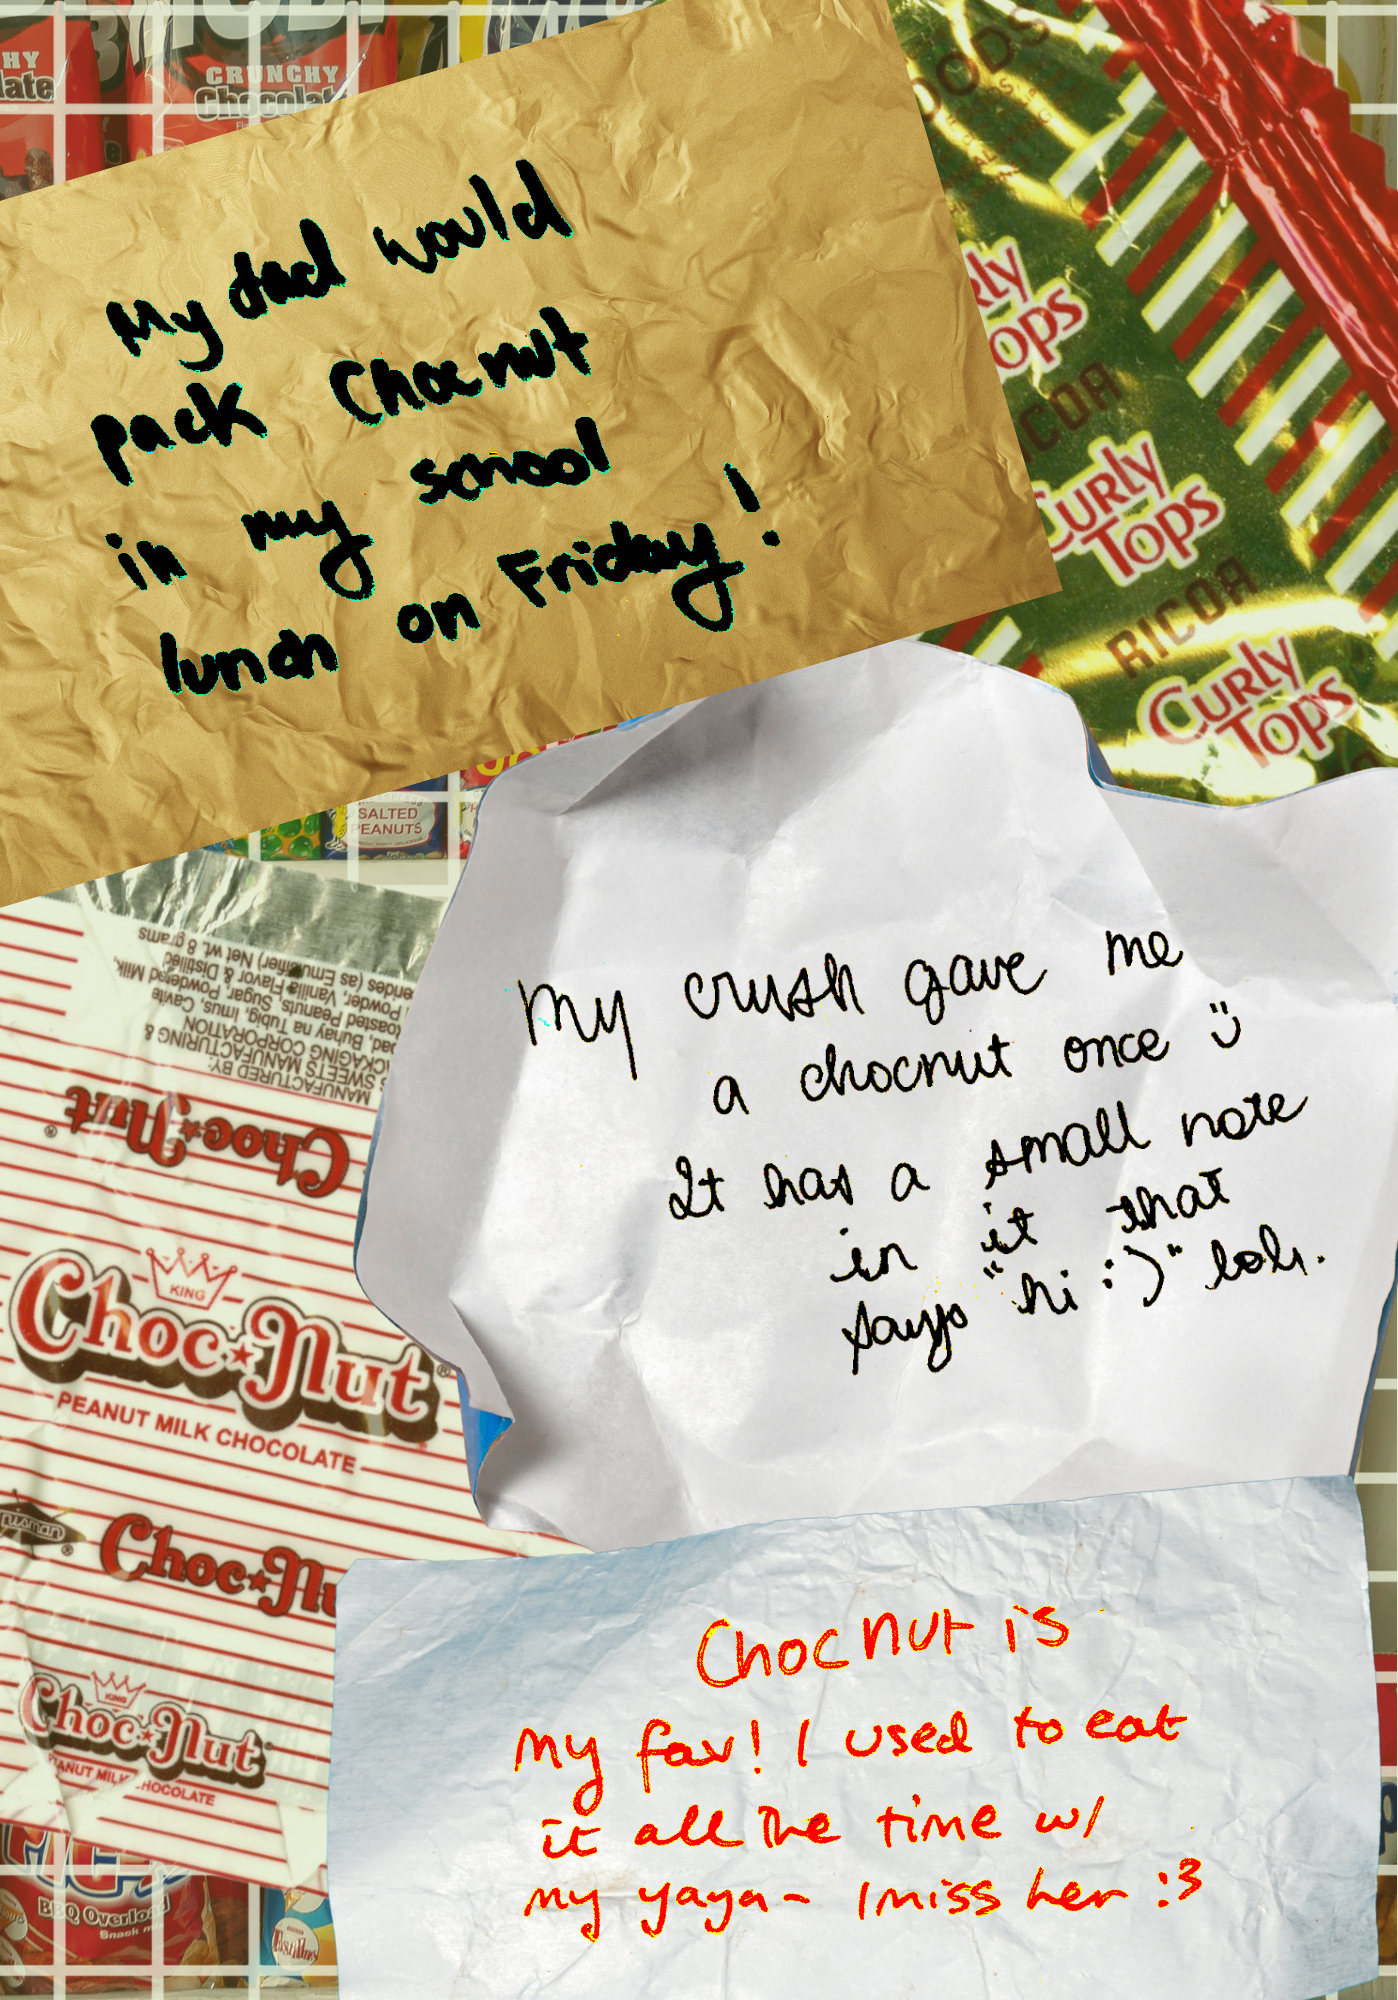 CRUNCHY
Chocolate
My dad would
pack Chocnut
in my school
lunch on Friday!
CURLY
TOPS
RICOA
CURLY
TOPS
SALTED
PEANUTS
My crush gave me
a chocnut once
It has a small note
in it that
says "hi :)" lol.
MANUFACTURED BY:
SWEETS MANUFACTURING &
PACKAGING CORPORATION
Buhay na Tubig, Imus, Cavite
Roasted Peanuts, Sugar, Powdered Milk,
Powder, Vanilla Flavor & Distilled
(as Emulsifier) Net wt. 8 grams
Choc★Nut®
KING
Choc★Nut®
PEANUT MILK CHOCOLATE
Choc★Nu
KING
Choc★Nut
PEANUT MILK CHOCOLATE
BBQ Overload
Chocnut is
My fav! I used to eat
it all the time w/
my yaya~ I miss her :3